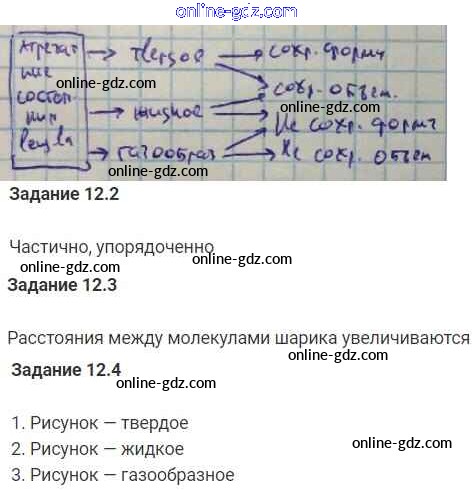 online-gdz.com
Агрегат → твердое → сохр. форму
ные online-gdz.com сохр. объем.
состоя- → жидкое → online-gdz.com
ния Не сохр. форму
вещ-ва → газообраз → Не сохр. объем
online-gdz.com
Задание 12.2
Частично, упорядоченно
online-gdz.com online-gdz.com
Задание 12.3
Расстояния между молекулами шарика увеличиваются
online-gdz.com
Задание 12.4
online-gdz.com
1. Рисунок — твердое
2. Рисунок — жидкое
online-gdz.com
3. Рисунок — газообразное